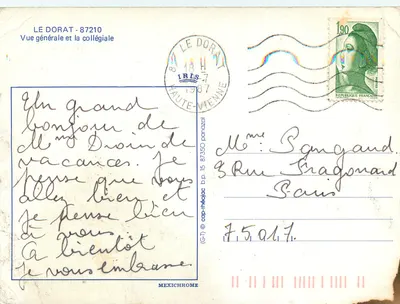 LE DORAT - 87210
Vue générale et la collégiale
87 LE DORAT
1987
HAUTE-VIENNE
1,90
Un grand
bonjour de
Mme Droin de
vacances. Je
pense que vous
allez bien et
je pense bien
à vous.
Ca bientôt
je vous embrasse
IRIS
MEXICHROME
(G-7) © cap-théojac b.p. 15 87350 panazol
Mme Pangaud.
3 Rue Fragonard
Paris
75017.